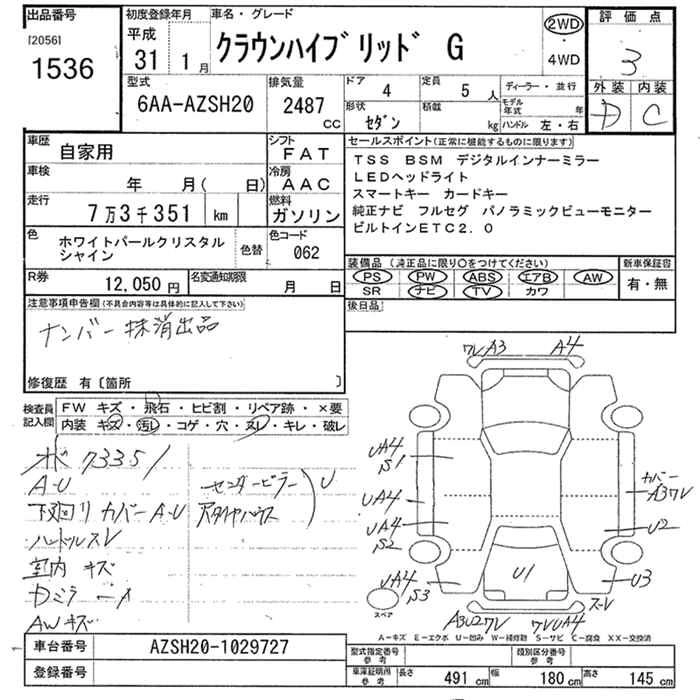 出品番号
[2056]
1536
初度登録年月
平成
31 1月
車名・グレード
クラウンハイブリッド G
2WD
・
4WD
評価点
3
外装 内装
D C
型式
6AA-AZSH20
排気量
2487
CC
ドア 4
定員 5人
形状 セダン
積載 kg
ディーラー・並行
モデル年式 年
ハンドル 左・右
車歴
自家用
シフト
FAT
車検
年 月( 日)
冷房
AAC
走行
7万3千351 km
燃料
ガソリン
色
ホワイトパールクリスタル
シャイン
色替
色コード
062
R券
12,050円
名変通知期限
月 日
セールスポイント(正常に機能するものに限ります)
TSS BSM デジタルインナーミラー
LEDヘッドライト
スマートキー カードキー
純正ナビ フルセグ パノラミックビューモニター
ビルトインETC2.0
装備品(純正品に限り○をつけてください)
PS PW ABS エアB AW
SR ナビ TV カワ
新車保証書
有・無
後日品
注意事項申告欄(不具合内容等は具体的に記入して下さい)
ナンバー抹消出品
修復歴 有〔箇所 〕
検査員
記入欄
FW キズ・飛石・ヒビ割・リペア跡・×要
内装 キズ・汚レ・コゲ・穴・ヌレ・キレ・破レ
オドメーター 73351
A-U
下廻り カバーA-U
ハンドルスレ
室内 キズ
Dミラー A
AWキズ
センターピラー
U
ワレA3 A4
UA4
S1
UA4
UA4
S2
UA4
S3
カバー
A3ワレ
U2
U3
U1
スレ
A3U2ワレ ワレUA4
スペア
A-キズ E-エクボ U-凹み W-補修跡 S-サビ C-腐食 XX-交換済
車台番号
AZSH20-1029727
登録番号
型式指定番号
参考
類別区分番号
参考
車庫証明用
参考
長さ 491 cm
幅 180 cm
高さ 145 cm